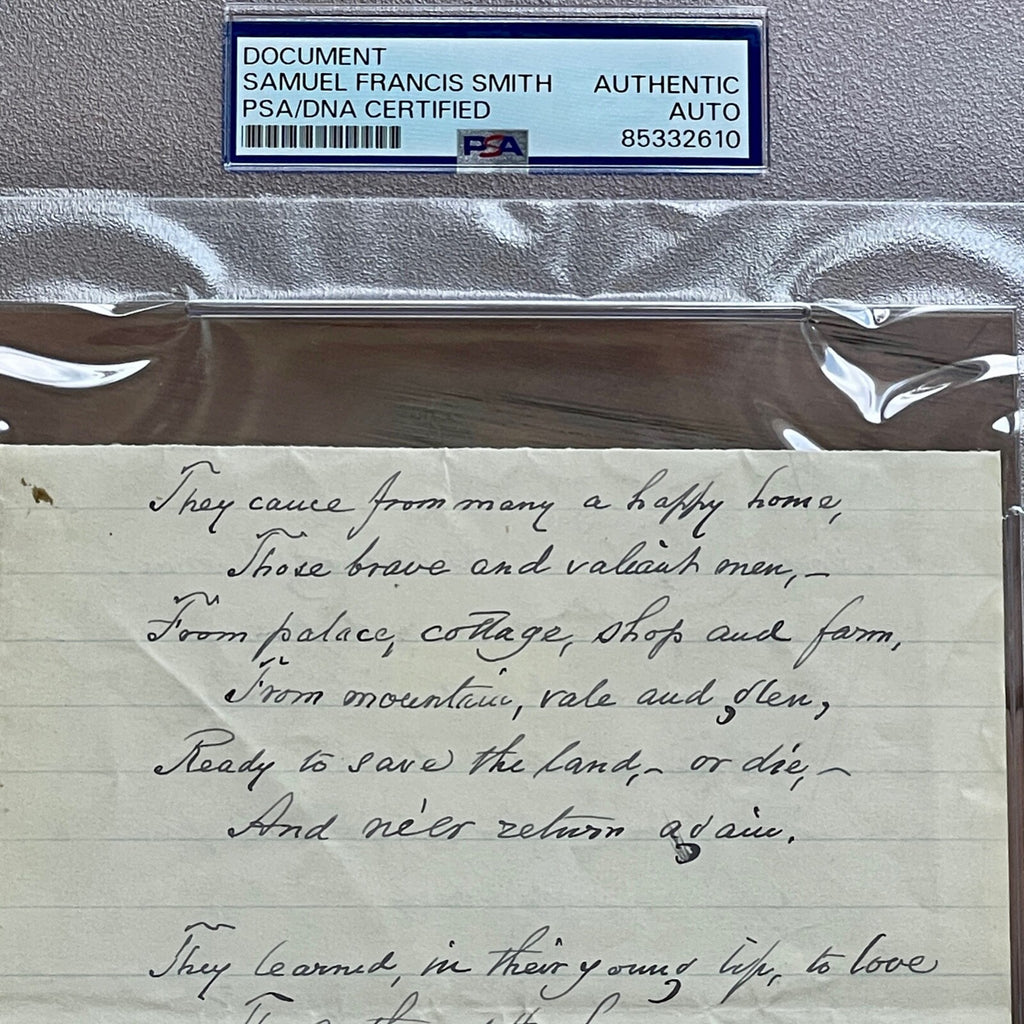 DOCUMENT
SAMUEL FRANCIS SMITH AUTHENTIC
PSA/DNA CERTIFIED AUTO
PSA 85332610
They came from many a happy home,
Those brave and valiant men, –
From palace, cottage, shop and farm,
From mountain, vale and glen,
Ready to save the land, – or die, –
And ne'er return again.
They learned, in their young life, to love